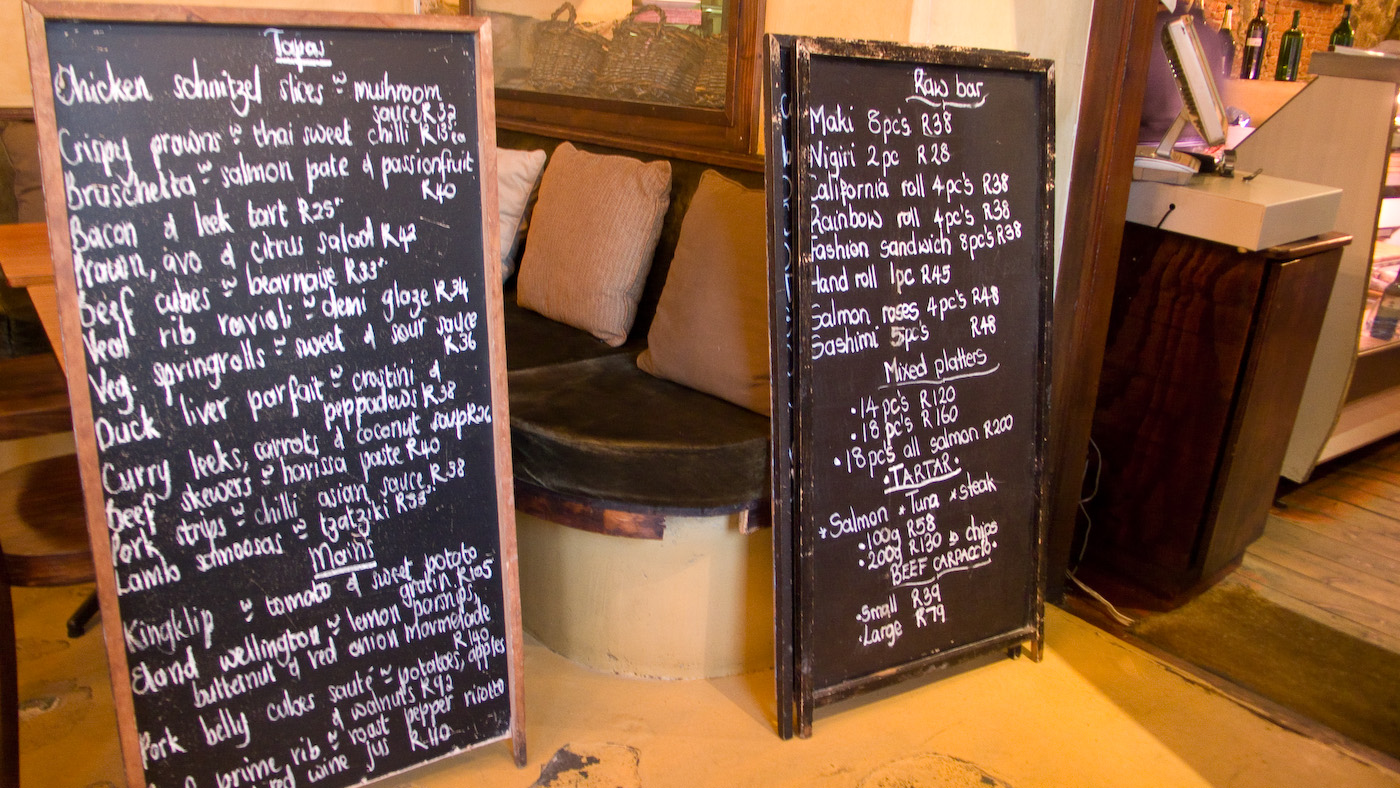 Tapas
Chicken schnitzel slices w muhroom
sauce R32
Crispy prawns w thai sweet chilli R15 ea
Bruschetta w salmon pate & passionfruit
R40
Bacon & leek tart R25
Prawn, avo & citrus salad R42
Beef cubes w bearnaise R33
Veal rib ravioli w demi glaze R34
Veg. springrolls w sweet & sour sauce
R36
Duck liver parfait w crostini &
peppadews R38
Curry leeks, carrots & coconut soup R26
Beef skewers w harissa paste R40
Pork strips w chilli asian sauce R38
Lamb schmoosas w tzatziki R33
Mains
Kingklip w tomato & sweet potato
gratin R105
Eland wellington w lemon parsnips,
butternut & red onion marmelade
R140
Pork belly cubes sauté w potatoes, apples
& walnuts R92
prime rib w roast pepper risotto
red wine jus R110
Raw bar
Maki 8pc's R38
Nigiri 2pc R28
California roll 4pc's R38
Rainbow roll 4pc's R38
Fashion sandwich 8pc's R38
Hand roll 1pc R45
Salmon roses 4pc's R48
Sashimi 5pc's R48
Mixed platters
• 14 pc's R120
• 18 pc's R160
• 18 pc's all salmon R200
• TARTAR •
* Salmon * Tuna * steak
• 100g R58
• 200g R130 w chips
BEEF CARPACCIO •
• Small R39
• Large R79